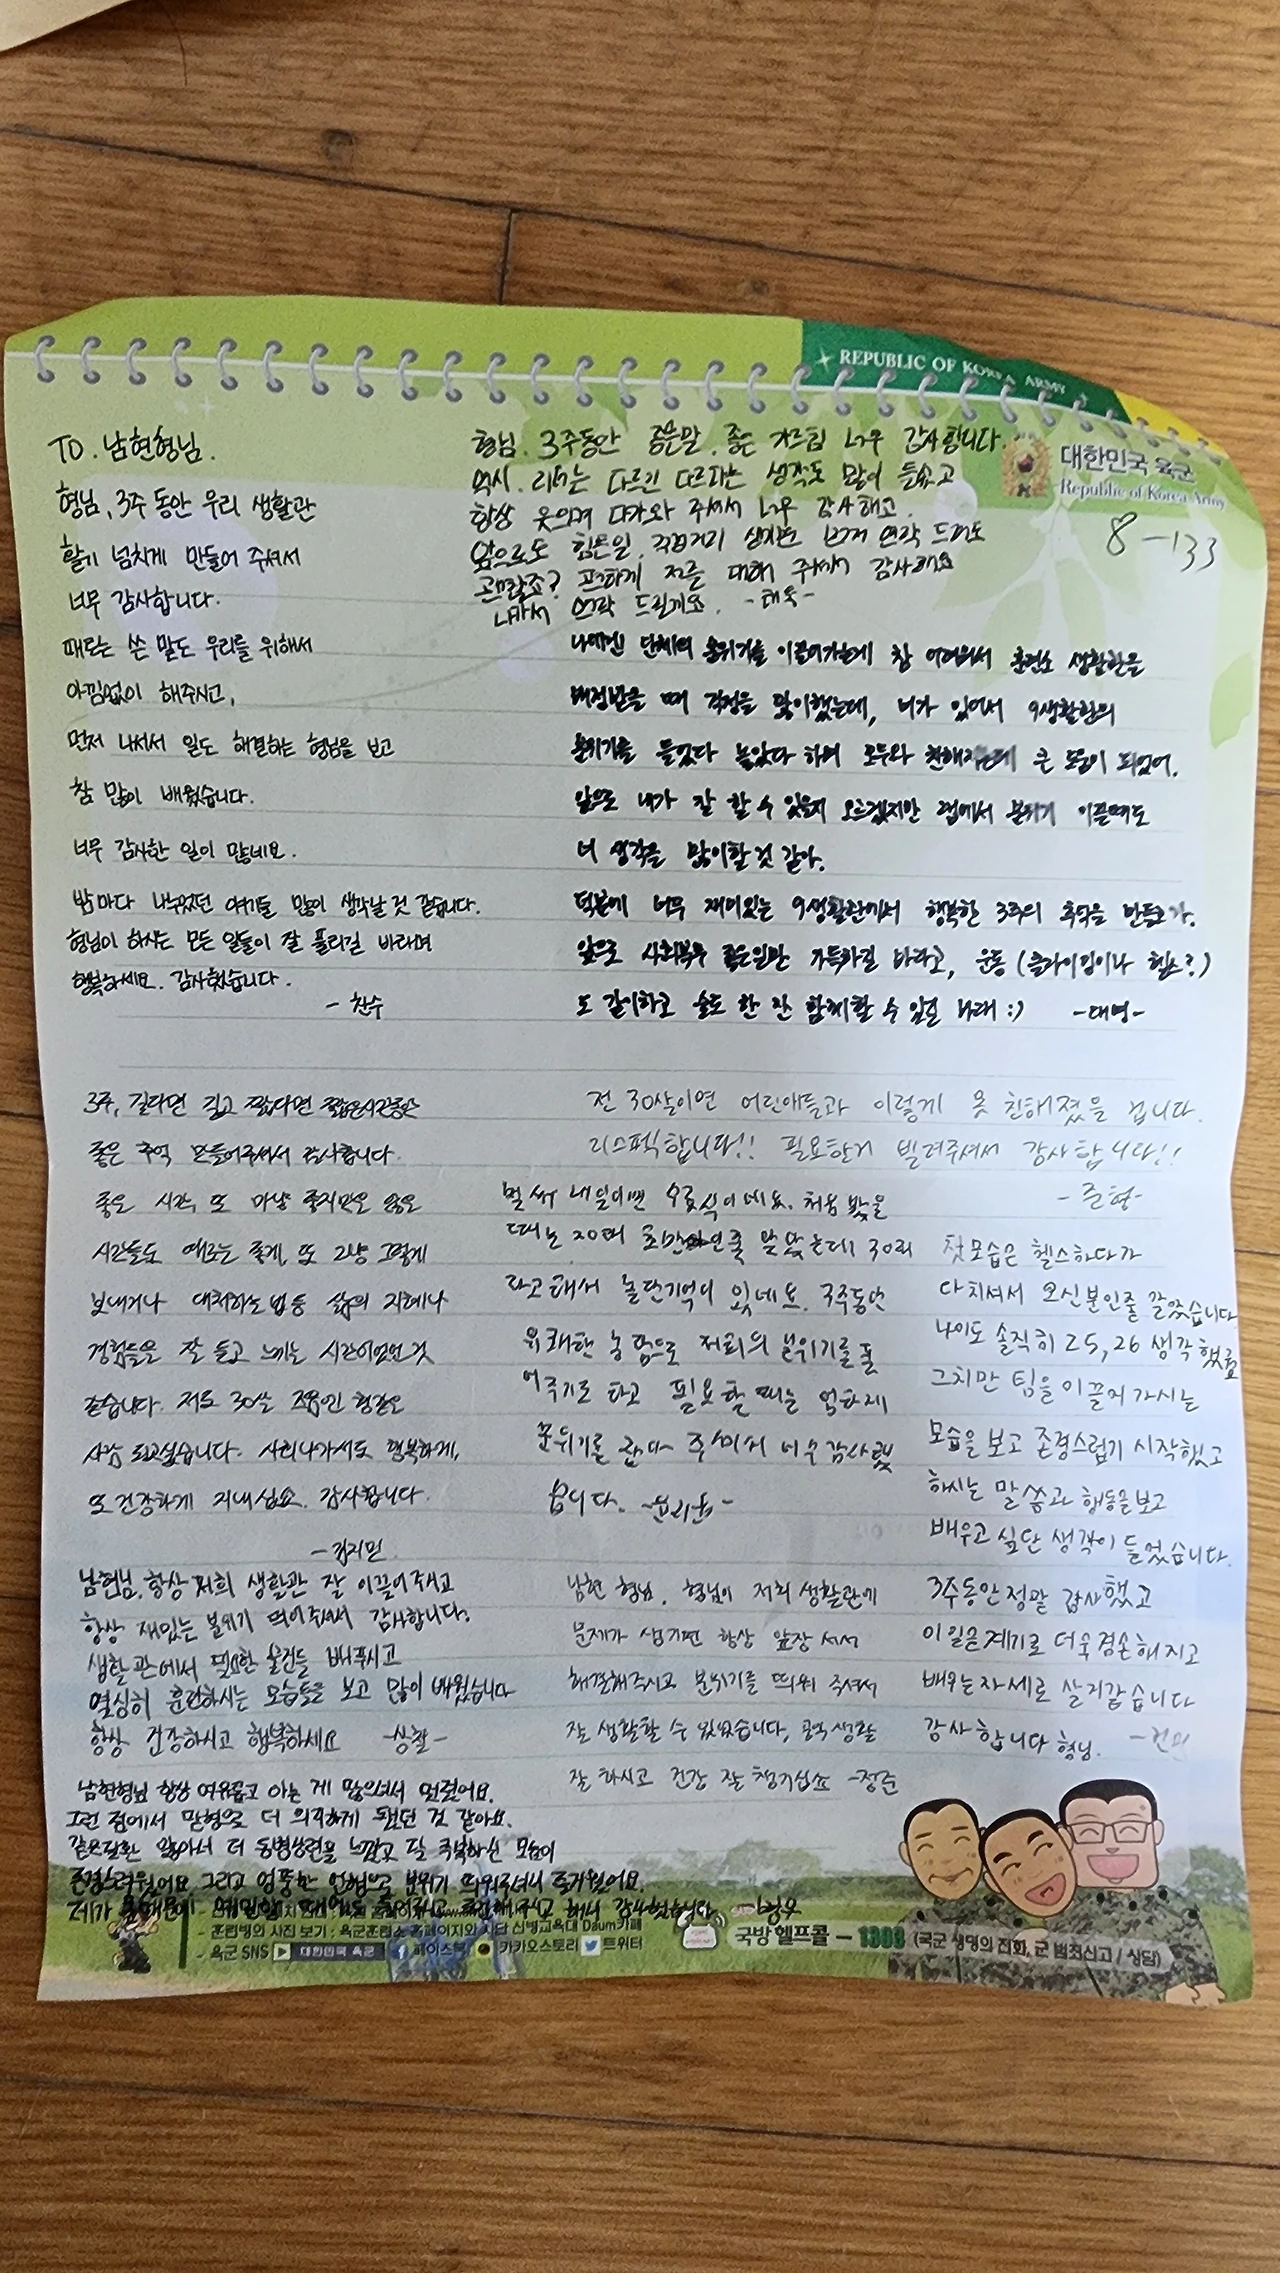 REPUBLIC OF KOREA ARMY
대한민국 육군
Republic of Korea Army
8-133
TO. 남현형님.
형님, 3주 동안 우리 생활관
활기 넘치게 만들어 주셔서
너무 감사합니다.
때로는 쓴 말도 우리를 위해서
아낌없이 해주시고,
먼저 나서서 일도 해결하는 형님을 보고
참 많이 배웠습니다.
너무 감사한 일이 많네요.
밤마다 나누었던 얘기들 많이 생각날 것 같습니다.
형님이 하시는 모든 일들이 잘 풀리길 바라며
행복하세요. 감사했습니다.
- 찬수
형님. 3주동안 좋은말. 좋은 가르침 너무 감사합니다.
역시. 리더는 다르긴 다르다는 생각도 많이 들었고
항상 웃으며 다가와 주셔서 너무 감사해요.
앞으로도 힘든일. 걱정거리 생기면 먼저 연락 드려도
괜찮죠? 편하게 저를 대해 주셔서 감사해요
나가서 연락 드릴게요. -태욱-
나에겐 단체의 분위기를 이끌어가는게 참 어려워서 훈련소 생활관을
배정받을 때 걱정을 많이했는데, 너가 있어서 9생활관의
분위기를 들었다 놓았다 하며 모두와 친해지는데 큰 도움이 되었어.
앞으로 내가 잘 할 수 있을지 모르겠지만 랩에서 분위기 이끌때도
너 생각을 많이할 것 같아.
덕분에 너무 재미있는 9생활관에서 행복한 3주의 추억을 만들고 가.
앞으로 사회복무 좋은일만 가득하길 바라고, 운동 (클라이밍이나 헬스?)
도 같이하고 술도 한 잔 함께할 수 있길 바래 :) -대영-
3주, 길다면 길고 짧다면 짧은시간동안
좋은 추억 만들어주셔서 감사합니다.
좋은 시간, 또 마냥 좋지만은 않은
시간들도 때로는 좋게, 또 그냥 그렇게
보내거나 대처하는 법 등 삶의 지혜나
경험들을 잘 듣고 느끼는 시간이었던 것
같습니다. 저도 30살 즈음엔 형같은
사람 되고싶습니다. 사회나가서도 행복하게,
또 건강하게 지내십쇼. 감사합니다.
-김지민
전 30살이면 어린애들과 이렇게 못 친해졌을 겁니다.
리스펙합니다!! 필요한거 빌려주셔서 감사합니다!!
-준형-
벌써 내일이면 수료식이네요. 처음 봤을
때는 20대 초반인줄 알았는데 30대
라고 해서 놀란기억이 있네요. 3주동안
유쾌한 농담으로 저희의 분위기를 풀
어주기도 하고 필요할 때는 엄하게
분위기를 잡아 주셔서 너무 감사했
습니다. -윤리원-
첫모습은 헬스하다가
다치셔서 오신분인줄 알았습니다
나이도 솔직히 25, 26 생각했고
그치만 팀을 이끌어 가시는
모습을 보고 존경스럽기 시작했고
하시는 말씀과 행동을 보고
배우고 싶단 생각이 들었습니다.
3주동안 정말 감사했고
이 일을 계기로 더욱 겸손해지고
배우는 자세로 살거같습니다
감사합니다 형님.
남현님, 항상 저희 생활관 잘 이끌어주시고
항상 재밌는 분위기 띄어주셔서 감사합니다.
생활관에서 필요한 물건들 베푸시고
열심히 훈련하시는 모습들을 보고 많이 배웠습니다
항상 건강하시고 행복하세요 -상철-
남현 형님. 형님이 저희 생활관에
문제가 생기면 항상 앞장 서서
해결해주시고 분위기를 띄워 주셔서
잘 생활할 수 있었습니다, 공익 생활
잘 하시고 건강 잘 챙기십쇼 -정준
남현형님 항상 여유롭고 아는 게 많으셔서 멋졌어요.
그런 점에서 맏형으로 더 의지하게 됐던 것 같아요.
같은질환 앓아서 더 동병상련을 느꼈고 잘 극복하신 모습이
존경스러웠어요 그리고 엉뚱한 언행으로 분위기 띄워주셔서 즐거웠어요.
제가 해서 감사했습니다
- 훈련병의 사진 보기 : 육군훈련소 홈페이지와 사단 신병교육대 Daum카페
- 육군 SNS 대한민국 육군 페이스북 카카오스토리 트위터
국방헬프콜 - 1303 (국군 생명의 전화, 군 범죄신고 / 상담)